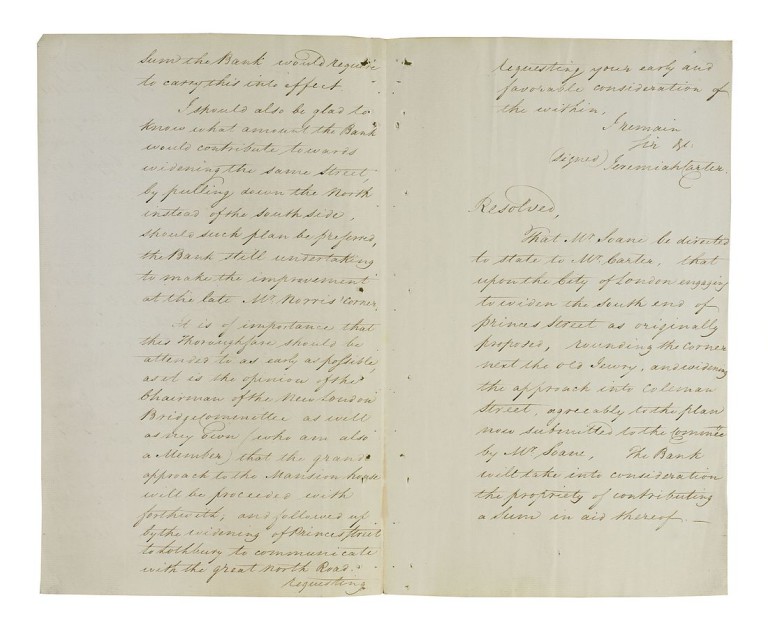 Sum the Bank would require
to carry this into effect
I should also be glad to
know what amount the Bank
would contribute towards
widening the same Street,
by pulling down the North
instead of the South side,
should such plan be preferred,
the Bank still undertaking
to make the improvement
at the late Mr. Norris' corner.
It is of importance that
this Thoroughfare should be
attended to as early as possible,
as it is the opinion of the
Chairman of the New London
Bridge Committee as well
as my own (who am also
a Member) that the grand
approach to the Mansion house
will be proceeded with
forthwith, and followed up
by the widening of Princes Street
to Lothbury to communicate
with the great North Road.
Requesting
requesting your early and
favorable consideration of
the within,
I remain
Sir &c.
(signed) Jeremiah Carter.
Resolved,
That Mr. Soane be directed
to state to Mr. Carter, that
upon the City of London engaging
to widen the South end of
Princes Street as originally
proposed, rounding the corner
next the Old Jewry, and widening
the approach into Coleman
Street, agreeably to the plan
now submitted to the Committee
by Mr. Soane, The Bank
will take into consideration
the propriety of contributing
a Sum in aid thereof.—